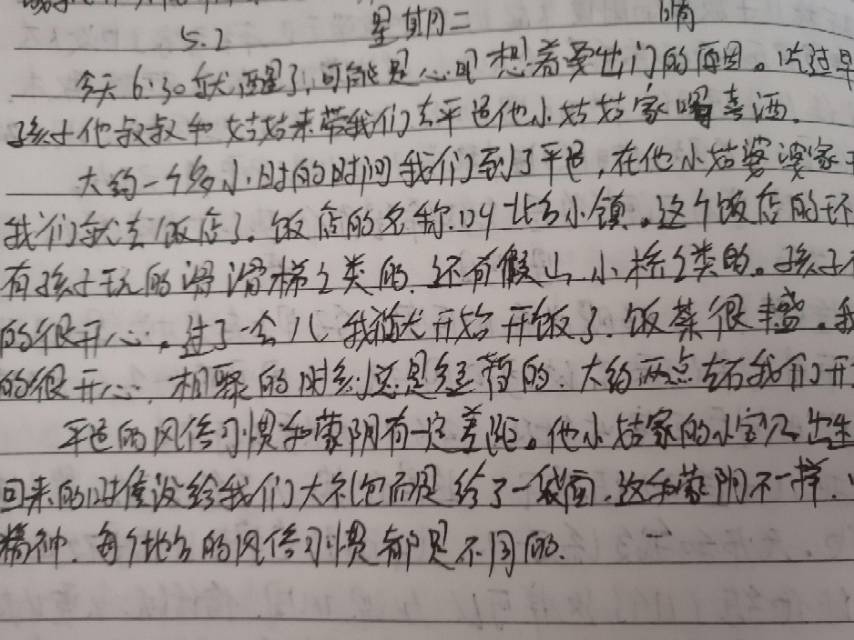 5.2 星期二 晴
今天6:30就醒了,可能是心里想着要出门的原因。吃过早
孩子他叔叔和姑姑来带我们去平邑他小姑姑家喝喜酒.
大约一个多小时的时间我们到了平邑,在他小姑婆婆家
我们就去饭店了.饭店的名称叫北乡小镇.这个饭店的环
有孩子玩的滑滑梯之类的.还有假山小桥之类的。孩子
的很开心.过了一会儿我们就开始开饭了.饭菜很丰盛.我
的很开心.相聚的时刻总是短暂的.大约两点左右我们开
平邑的风俗习惯和蒙阴有一定差距。他小姑家的小宝儿出生
回来的时候没给我们大礼包而是给了一袋面.这和蒙阴不一样.
精神.每个地方的风俗习惯都是不同的.